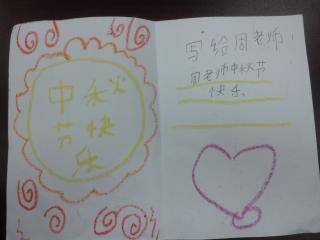 中秋
节快
乐
写给周老师：
周老师中秋节
快乐